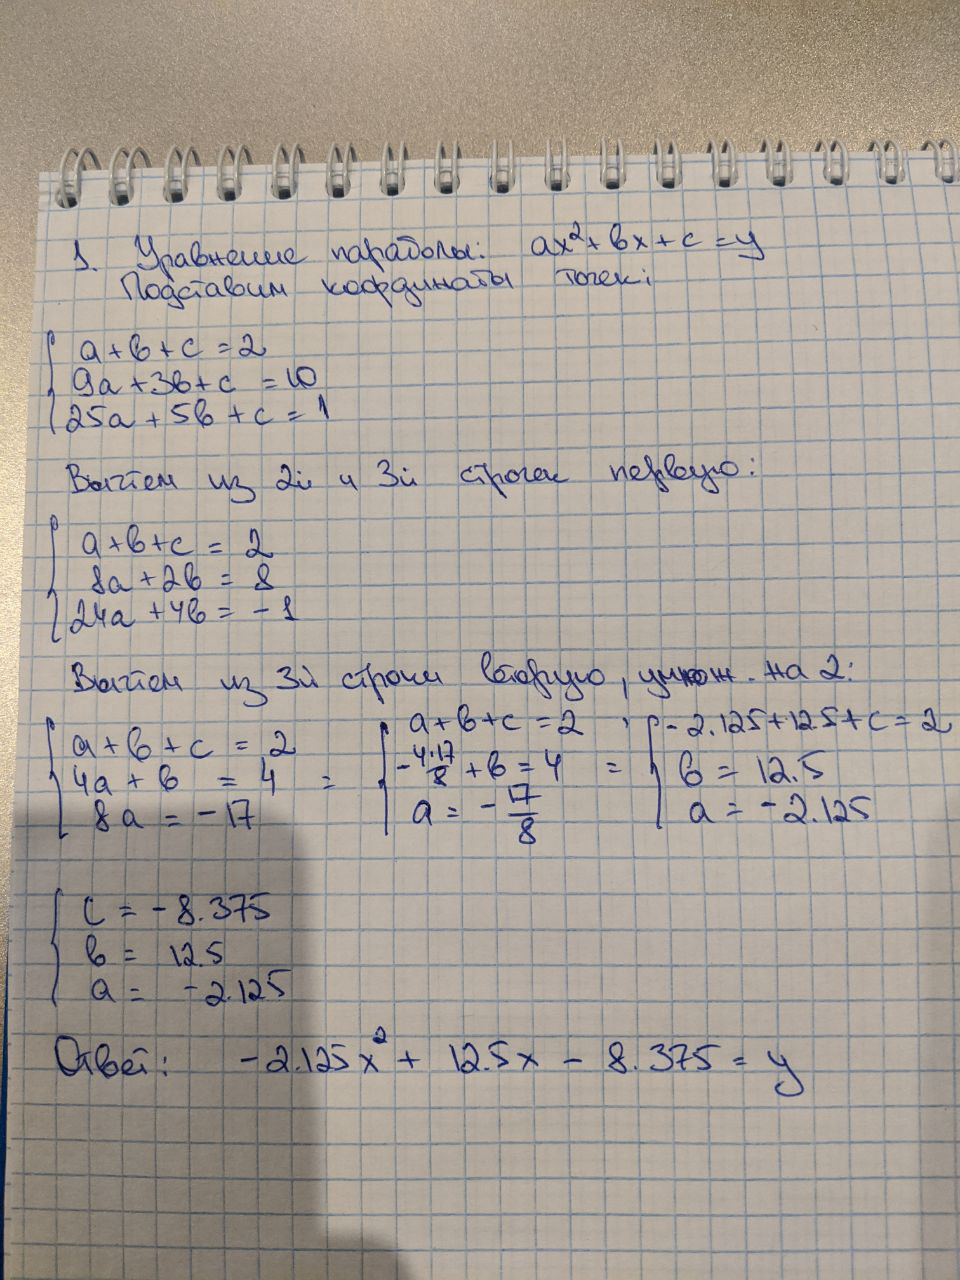 1. Уравнение параболы: ax²+bx+c=y
Подставим координаты точек:
a+b+c=2
9a+3b+c=10
25a+5b+c=1
Вычтем из 2й и 3й строчек первую:
a+b+c=2
8a+2b=8
24a+4b=-1
Вычтем из 3й строчки вторую, умнож. на 2:
a+b+c=2
4a+b=4
8a=-17
=
a+b+c=2
-4·17/8+b=4
a=-17/8
=
-2.125+12.5+c=2
b=12.5
a=-2.125
c=-8.375
b=12.5
a=-2.125
Ответ: -2.125x²+12.5x-8.375=y